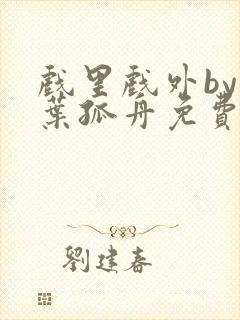 戲里戲外by
葉孤丹免費
劉建春